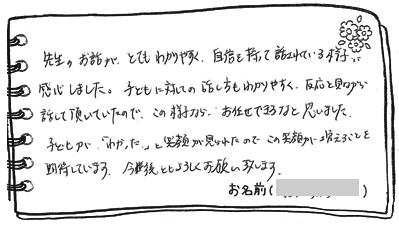 先生のお話が、とてもわかりやすく、自信を持って話されている様子に
感心しました。子どもに対しての話し方もわかりやすく、反応を見ながら
話して頂いていたので、この様なら、お任せできるなと思いました。
子どもが「わかった」と笑顔が見られたので この笑顔が増えることを
期待しています。今後ともよろしくお願い致します。
お名前(